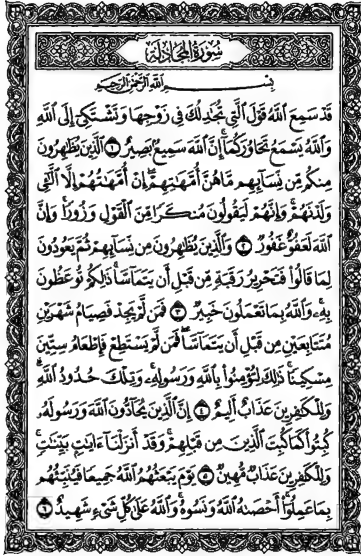 سُورَةُ الْمُجَادِلَةِ
بِسْمِ اللَّهِ الرَّحْمَٰنِ الرَّحِيمِ
قَدْ سَمِعَ اللَّهُ قَوْلَ الَّتِي تُجَٰدِلُكَ فِي زَوْجِهَا وَتَشْتَكِي إِلَى اللَّهِ
وَاللَّهُ يَسْمَعُ تَحَاوُرَكُمَا إِنَّ اللَّهَ سَمِيعٌ بَصِيرٌ ١ الَّذِينَ يُظَٰهِرُونَ
مِنكُم مِّن نِّسَآئِهِم مَّا هُنَّ أُمَّهَٰتِهِمْ إِنْ أُمَّهَٰتُهُمْ إِلَّا الَّٰٓئِي
وَلَدْنَهُمْ وَإِنَّهُمْ لَيَقُولُونَ مُنكَرًا مِّنَ الْقَوْلِ وَزُورًا وَإِنَّ
اللَّهَ لَعَفُوٌّ غَفُورٌ ٢ وَالَّذِينَ يُظَٰهِرُونَ مِن نِّسَآئِهِمْ ثُمَّ يَعُودُونَ
لِمَا قَالُوا فَتَحْرِيرُ رَقَبَةٍ مِّن قَبْلِ أَن يَتَمَآسَّا ذَٰلِكُمْ تُوعَظُونَ
بِهِ وَاللَّهُ بِمَا تَعْمَلُونَ خَبِيرٌ ٣ فَمَن لَّمْ يَجِدْ فَصِيَامُ شَهْرَيْنِ
مُتَتَابِعَيْنِ مِن قَبْلِ أَن يَتَمَآسَّا فَمَن لَّمْ يَسْتَطِعْ فَإِطْعَامُ سِتِّينَ
مِسْكِينًا ذَٰلِكَ لِتُؤْمِنُوا بِاللَّهِ وَرَسُولِهِ وَتِلْكَ حُدُودُ اللَّهِ
وَلِلْكَٰفِرِينَ عَذَابٌ أَلِيمٌ ٤ إِنَّ الَّذِينَ يُحَآدُّونَ اللَّهَ وَرَسُولَهُ
كُبِتُوا كَمَا كُبِتَ الَّذِينَ مِن قَبْلِهِمْ وَقَدْ أَنزَلْنَآ ءَايَٰتٍ بَيِّنَٰتٍ
وَلِلْكَٰفِرِينَ عَذَابٌ مُّهِينٌ ٥ يَوْمَ يَبْعَثُهُمُ اللَّهُ جَمِيعًا فَيُنَبِّئُهُم
بِمَا عَمِلُوا أَحْصَىٰهُ اللَّهُ وَنَسُوهُ وَاللَّهُ عَلَىٰ كُلِّ شَيْءٍ شَهِيدٌ ٦